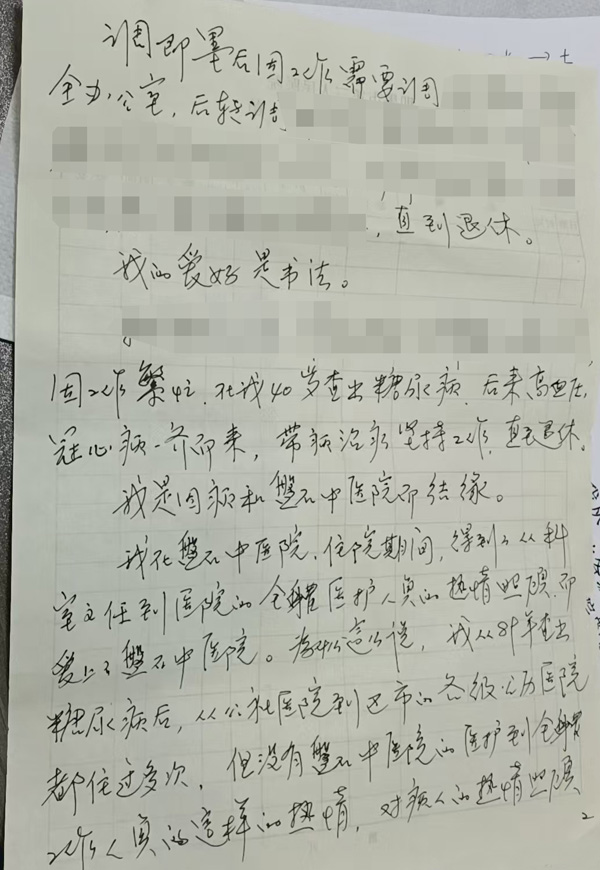 调即墨后因工作需要调
全办公室，后转调
，直到退休。
我的爱好是书法。
因工作繁忙，在我40岁查出糖尿病，后来高血压，
冠心病一齐而来，带病治疗坚持工作，直至退休。
我是因病和磐石中医院而结缘。
我在磐石中医院，住院期间，得到了从科
室主任到医院的全体医护人员的热情照顾，而
爱上了磐石中医院。为什么这么说，我从89年查出
糖尿病后，从公社医院到区市的各级公办医院
都住过多次，但没有磐石中医院的医护到全体
工作人员的这样的热情，对病人的热情照顾
2